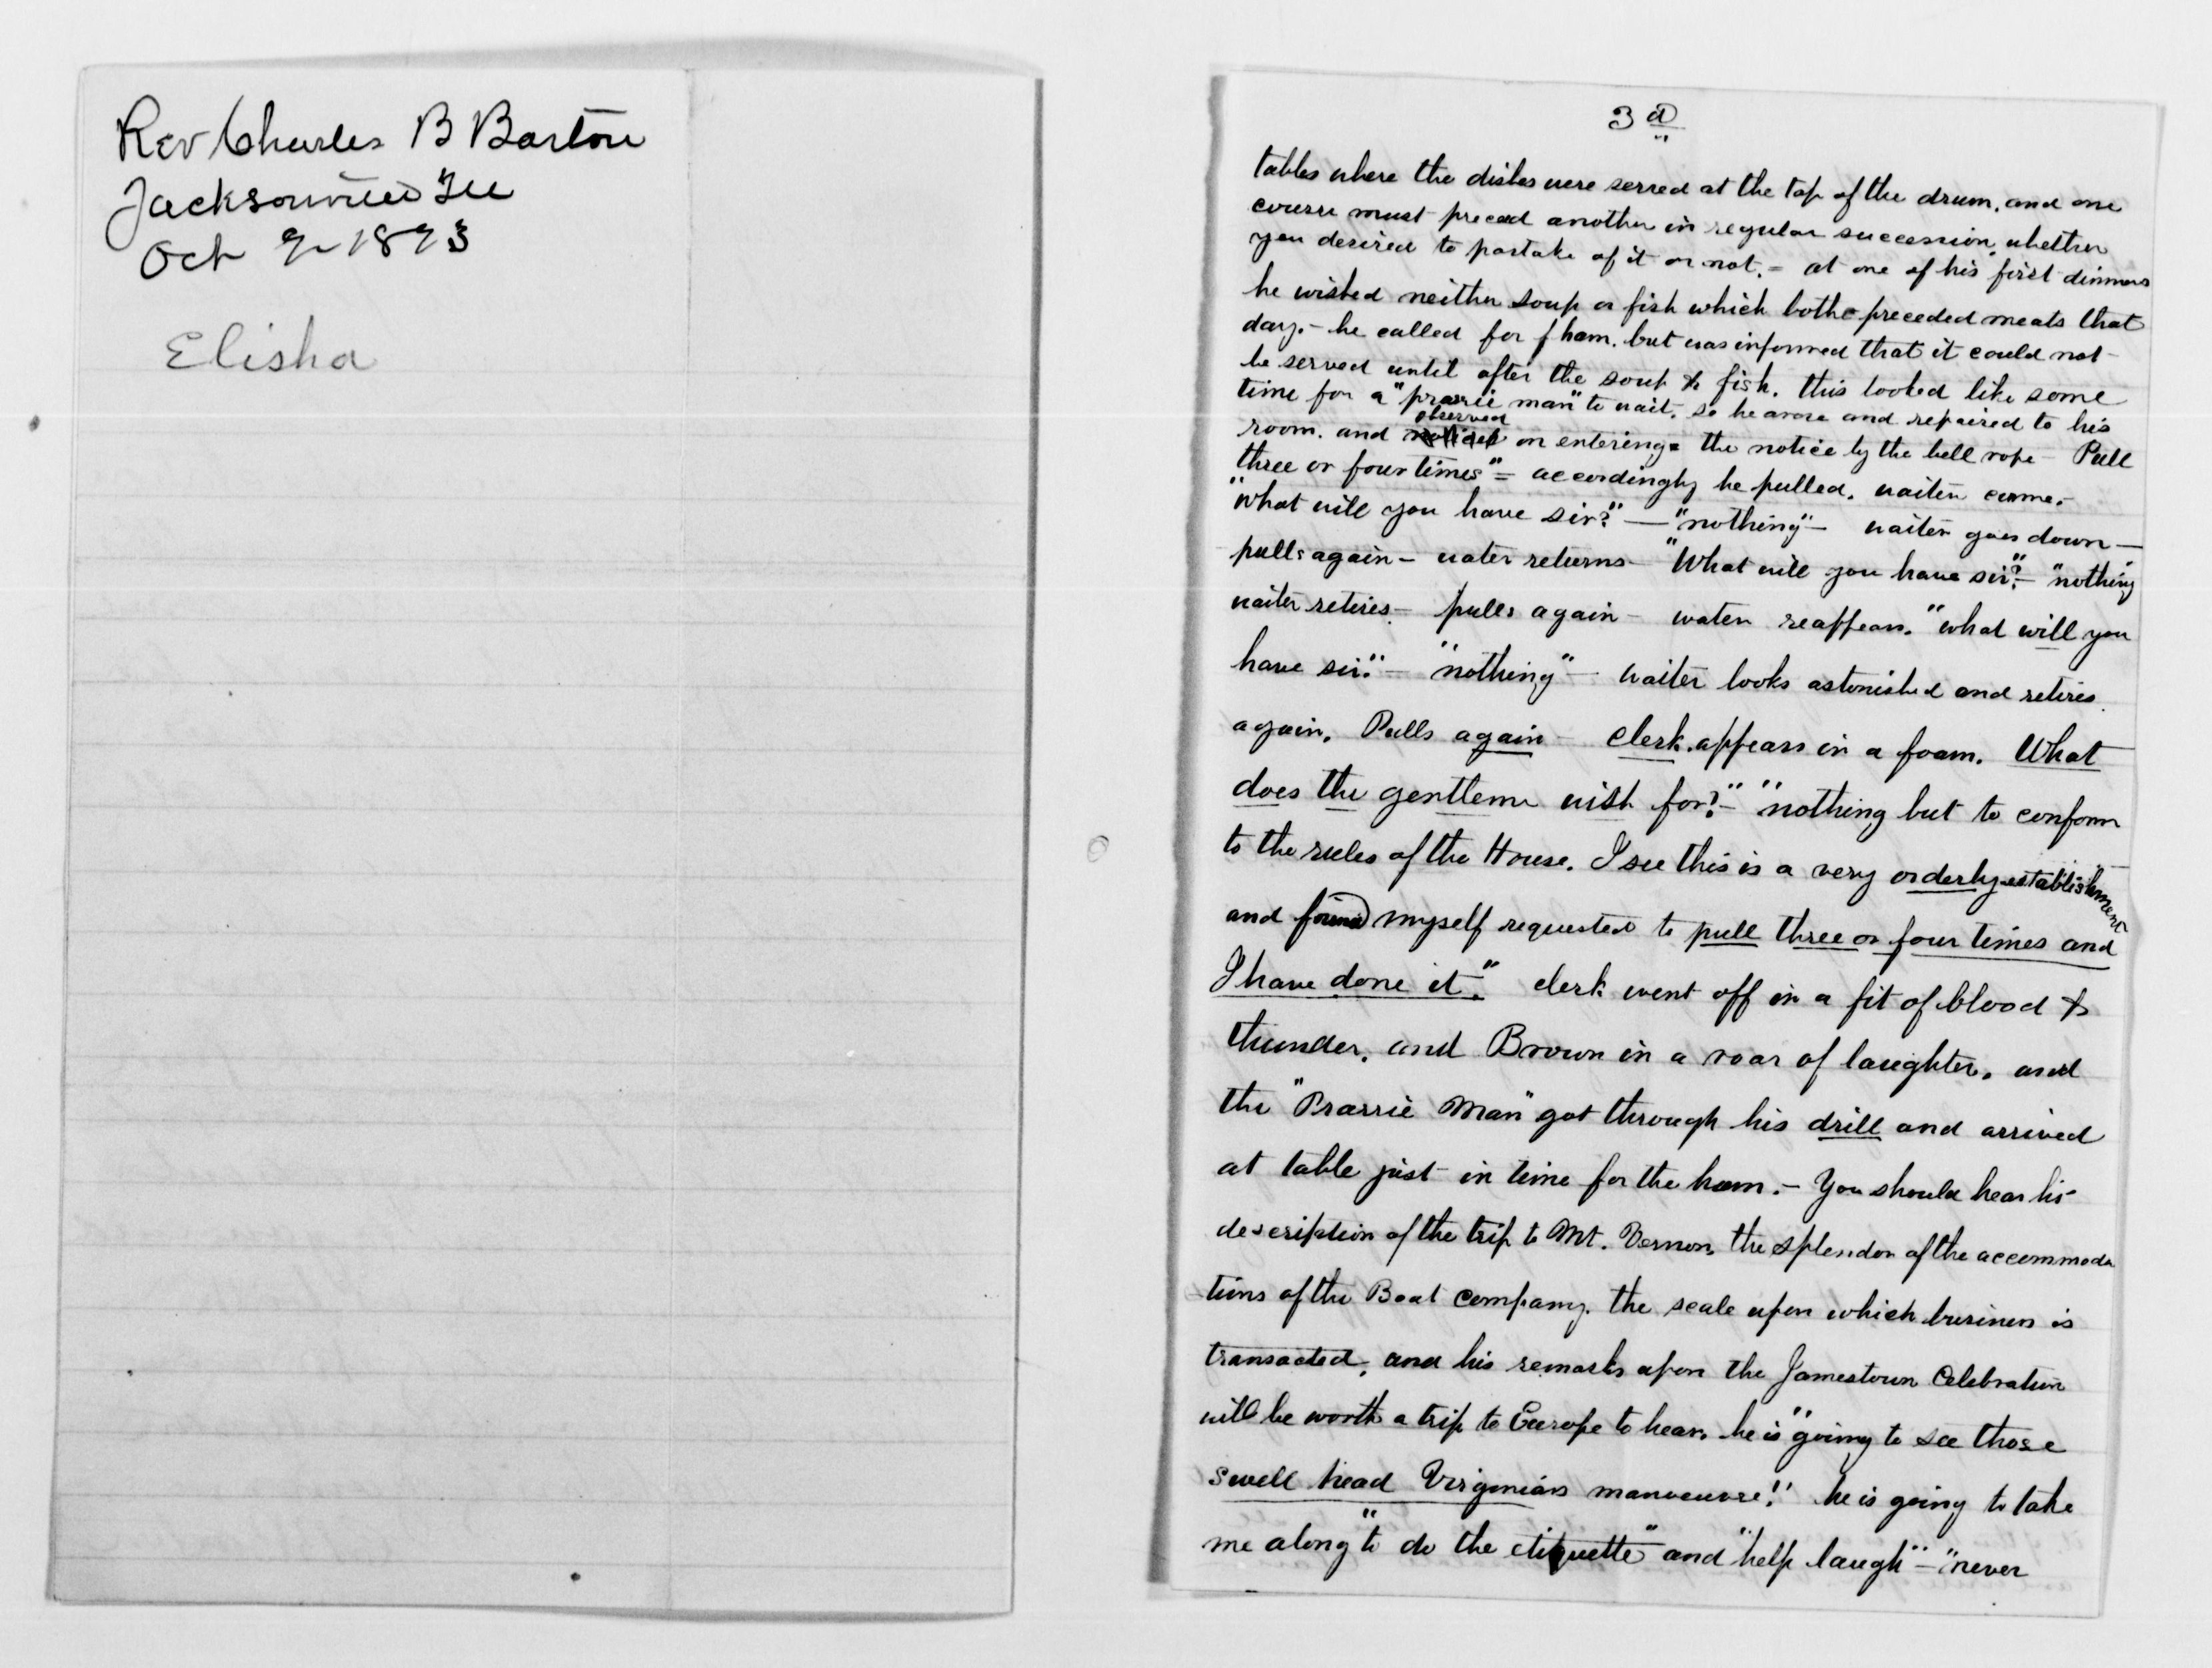 Rev Charles B Barton
Jacksonville Ill
Oct 9 1893
Elisha
3d
tables where the dishes were served at the tap of the drum, and one
course must preceed another in regular succession, whether
you desired to partake of it or not. = at one of his first dinners
he wished neither soup or fish which both preceded meats that
day. - he called for ham. but was informed that it could not
be served until after the soup & fish. this looked like some
time for a "prarrie man" to wait. so he arose and repaired to his
observed
room. and noticed on entering = the notice by the bell rope - Pull
three or four times" = accordingly he pulled. waiter came. -
"What will you have sir?" — "nothing" — waiter goes down —
pulls again - water returns - "What will you have sir?" - "nothing"
waiter retires - pulls again - water reappears. "what will you
have sir." - "nothing" - waiter looks astonished and retires
again. Pulls again - clerk appears in a foam. What
does the gentlemn wish for?" - "nothing but to conform
to the rules of the House. I see this is a very orderly establishment
and found myself requested to pull three or four times and
I have done it." clerk went off in a fit of blood &
thunder. and Brown in a roar of laughter. and
the "Prarrie Man" got through his drill and arrived
at table just in time for the ham. - You should hear his
description of the trip to Mt. Vernon, the splendor of the accommoda
tions of the Boat company. the scale upon which business is
transacted, and his remarks upon the Jamestown Celebration
will be worth a trip to Europe to hear. he is "going to see those
swell head Virginians manoeuvre!" he is going to take
me along "to do the etiquette" and "help laugh" - "never